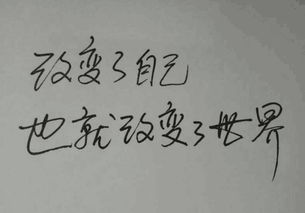 改变了自己
也就改变了世界